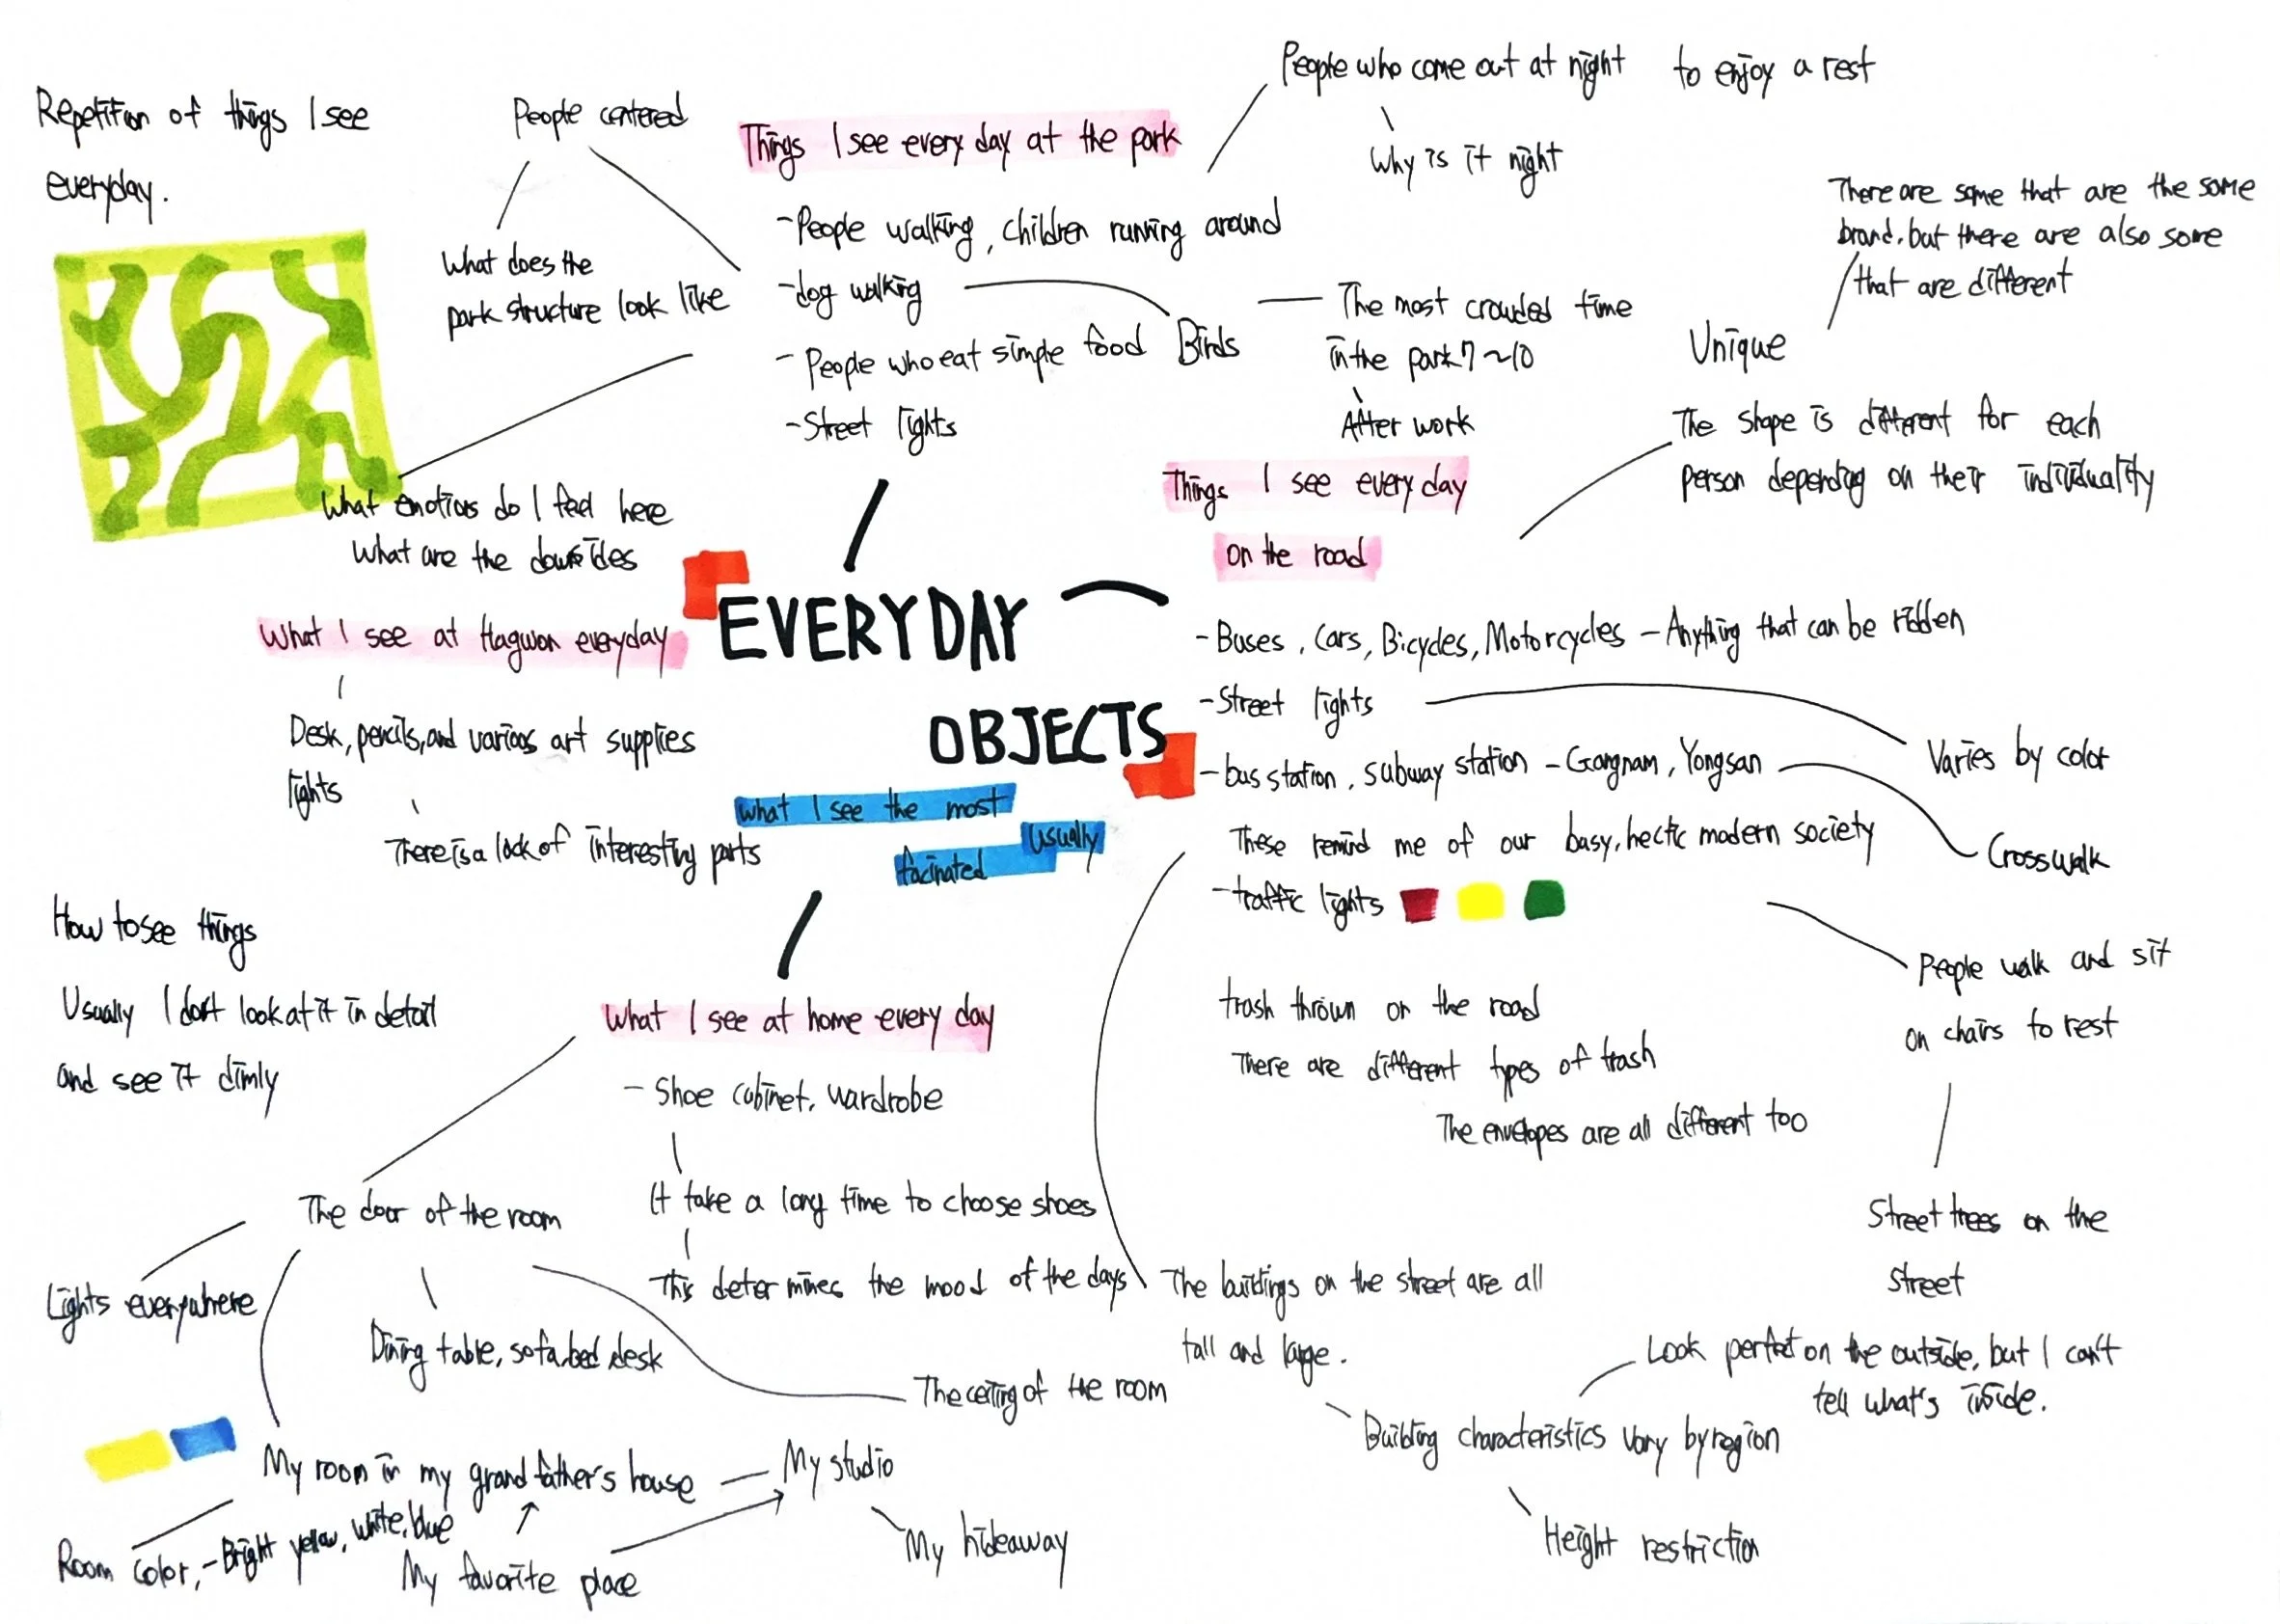 Repetition of things I see
everyday.
People centered
What does the
park structure look like
Things I see every day at the park
-People walking, children running around
-dog walking
- People who eat simple food
Birds
-Street lights
People who come out at night to enjoy a rest
Why is it night
The most crouded time
in the park 7~10
After work
There are some that are the same
brand, but there are also some
that are different
Unique
The shape is different for each
person depending on their individuality
What emotions do I feel here
What are the downsides
Things I see every day
on the road
EVERYDAY
OBJECTS
What I see at Hagwon everyday
Desk, pencils, and various art supplies
lights
There is a lack of interesting parts
what I see the most
usually
facinated
-Buses, Cars, Bicycles, Motorcycles - Anything that can be ridden
-Street lights
Varies by color
-bus station, subway station - Gangnam, Yongsan
Crosswalk
These remind me of our basy, hectic modern society
-traffic lights
People walk and sit
on chairs to rest
Street trees on the
street
trash thrown on the road
There are different types of trash
The envelopes are all different too
How to see things
Usually I don't look at it in detail
and see it dimly
What I see at home every day
- Shoe cabinet, wardrobe
It take a long time to choose shoes
This determines the mood of the days
The door of the room
Lights everywhere
Dining table, sofa, bed desk
The ceiling of the room
The buildings on the street are all
tall and large.
Look perfect on the outside, but I can't
tell what's inside.
Building characteristics vary by region
Height restriction
My room in my grand father's house
My studio
My hideaway
Room color, - Bright yellow, white, blue
My favorite place